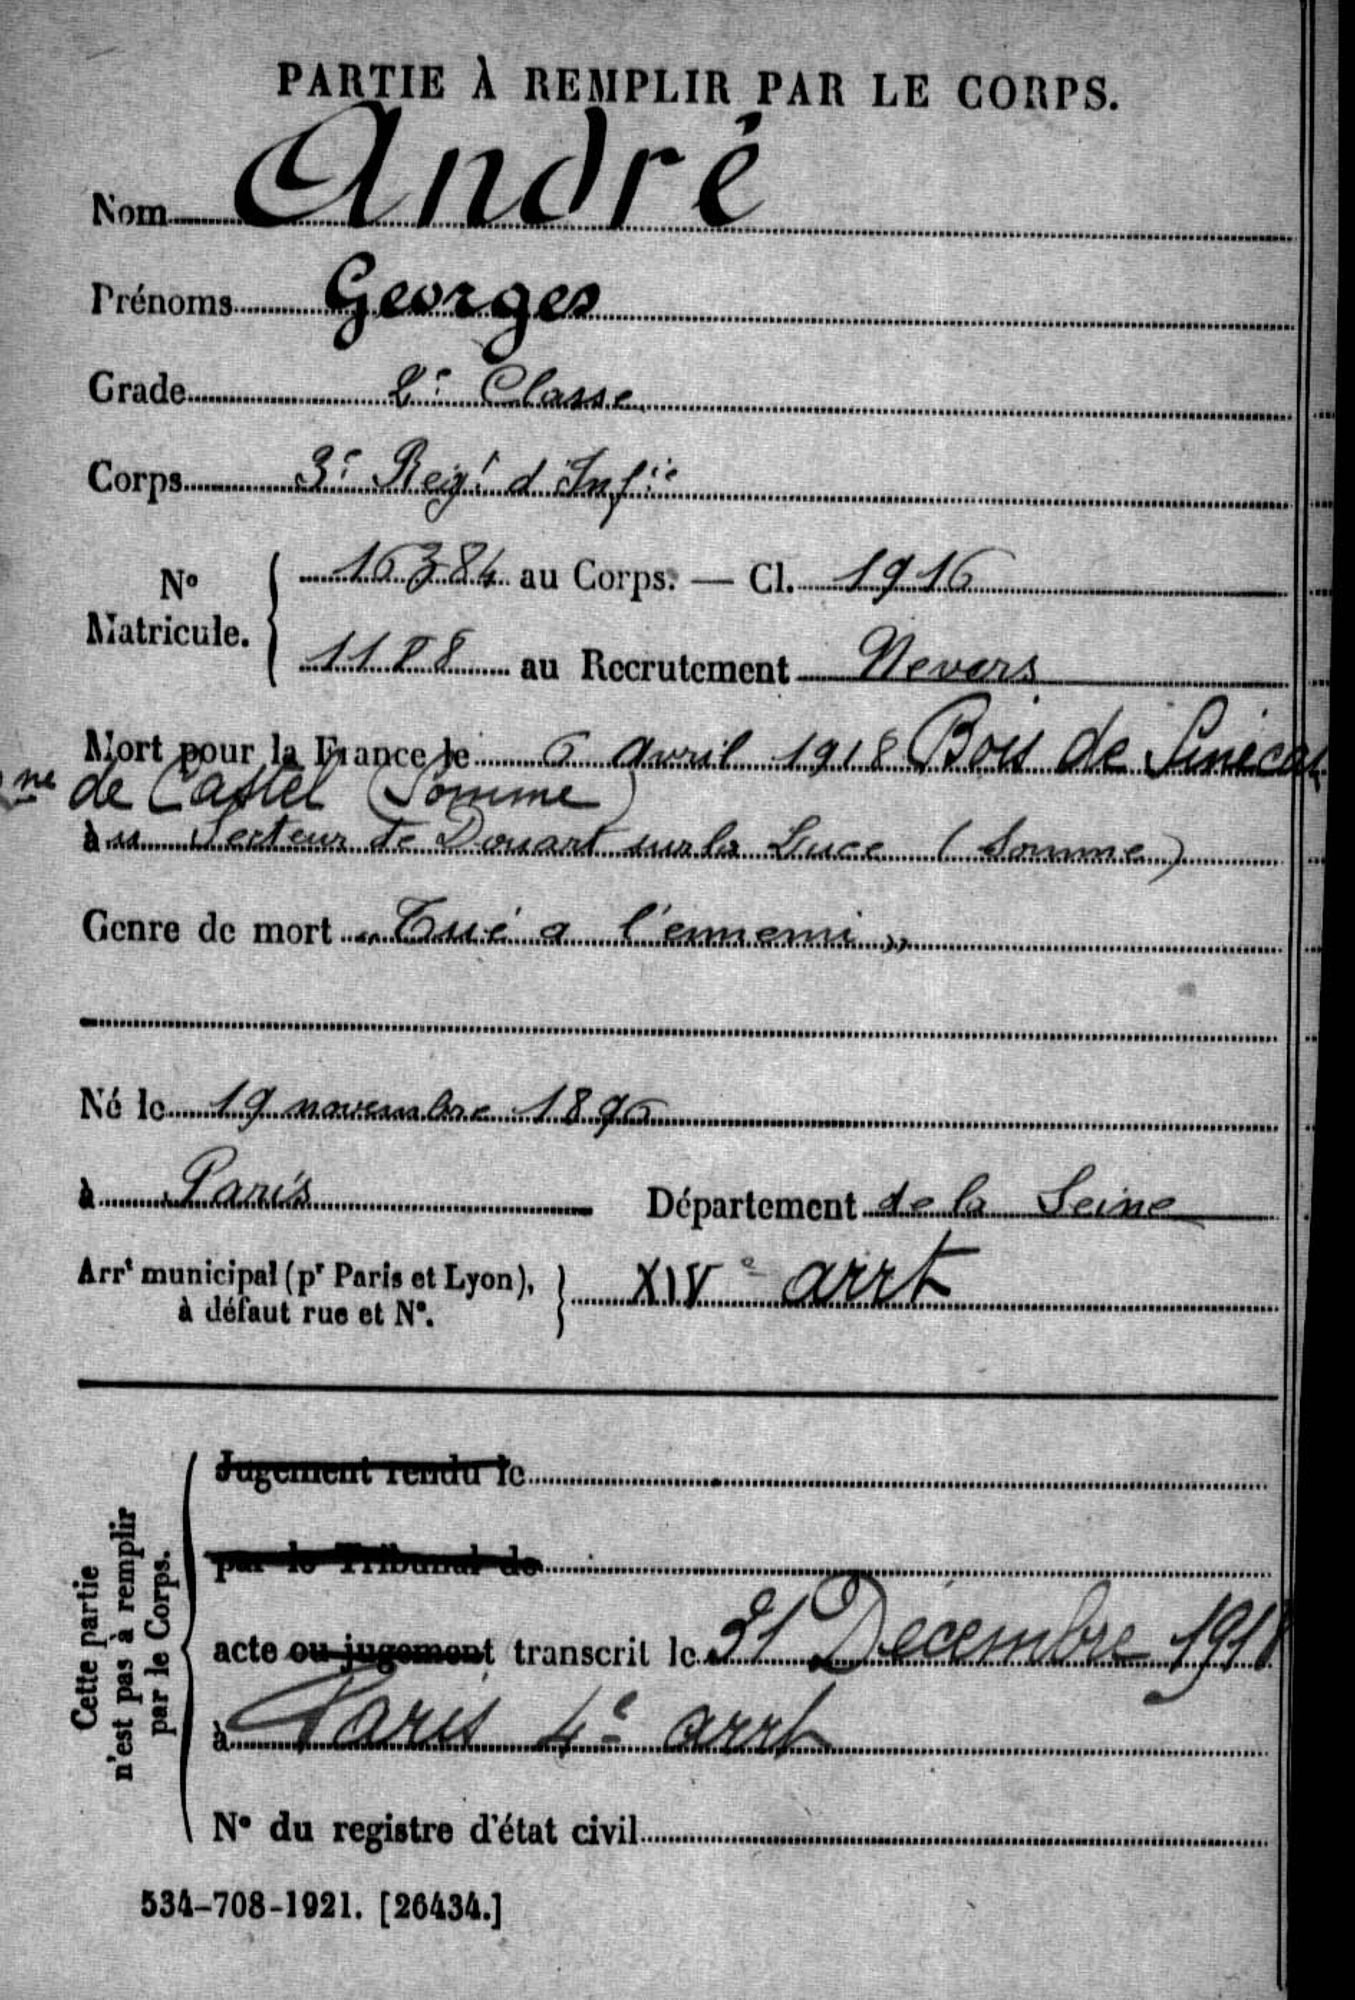 PARTIE À REMPLIR PAR LE CORPS.
Nom André
Prénoms Georges
Grade 2e Classe
Corps 3e Reg.t d Inf.ie
No Matricule. { 16384 au Corps. — Cl. 1916
1188 au Recrutement Nevers
Mort pour la France le 6 avril 1918 Bois de Sénécat
ne de Castel (Somme)
à u Secteur de Douart sur la Luce (Somme)
Genre de mort « Tué a l'ennemi »
Né le 19 novembre 1896
à Paris Département de la Seine
Arrt municipal (pr Paris et Lyon), à défaut rue et No. } XIVe arrt
Cette partie n'est pas à remplir par le Corps.
Jugement rendu le
par le Tribunal de
acte ou jugement transcrit le 31 Décembre 1918
à Paris 4e arrt
No du registre d'état civil
534-708-1921. [26434.]